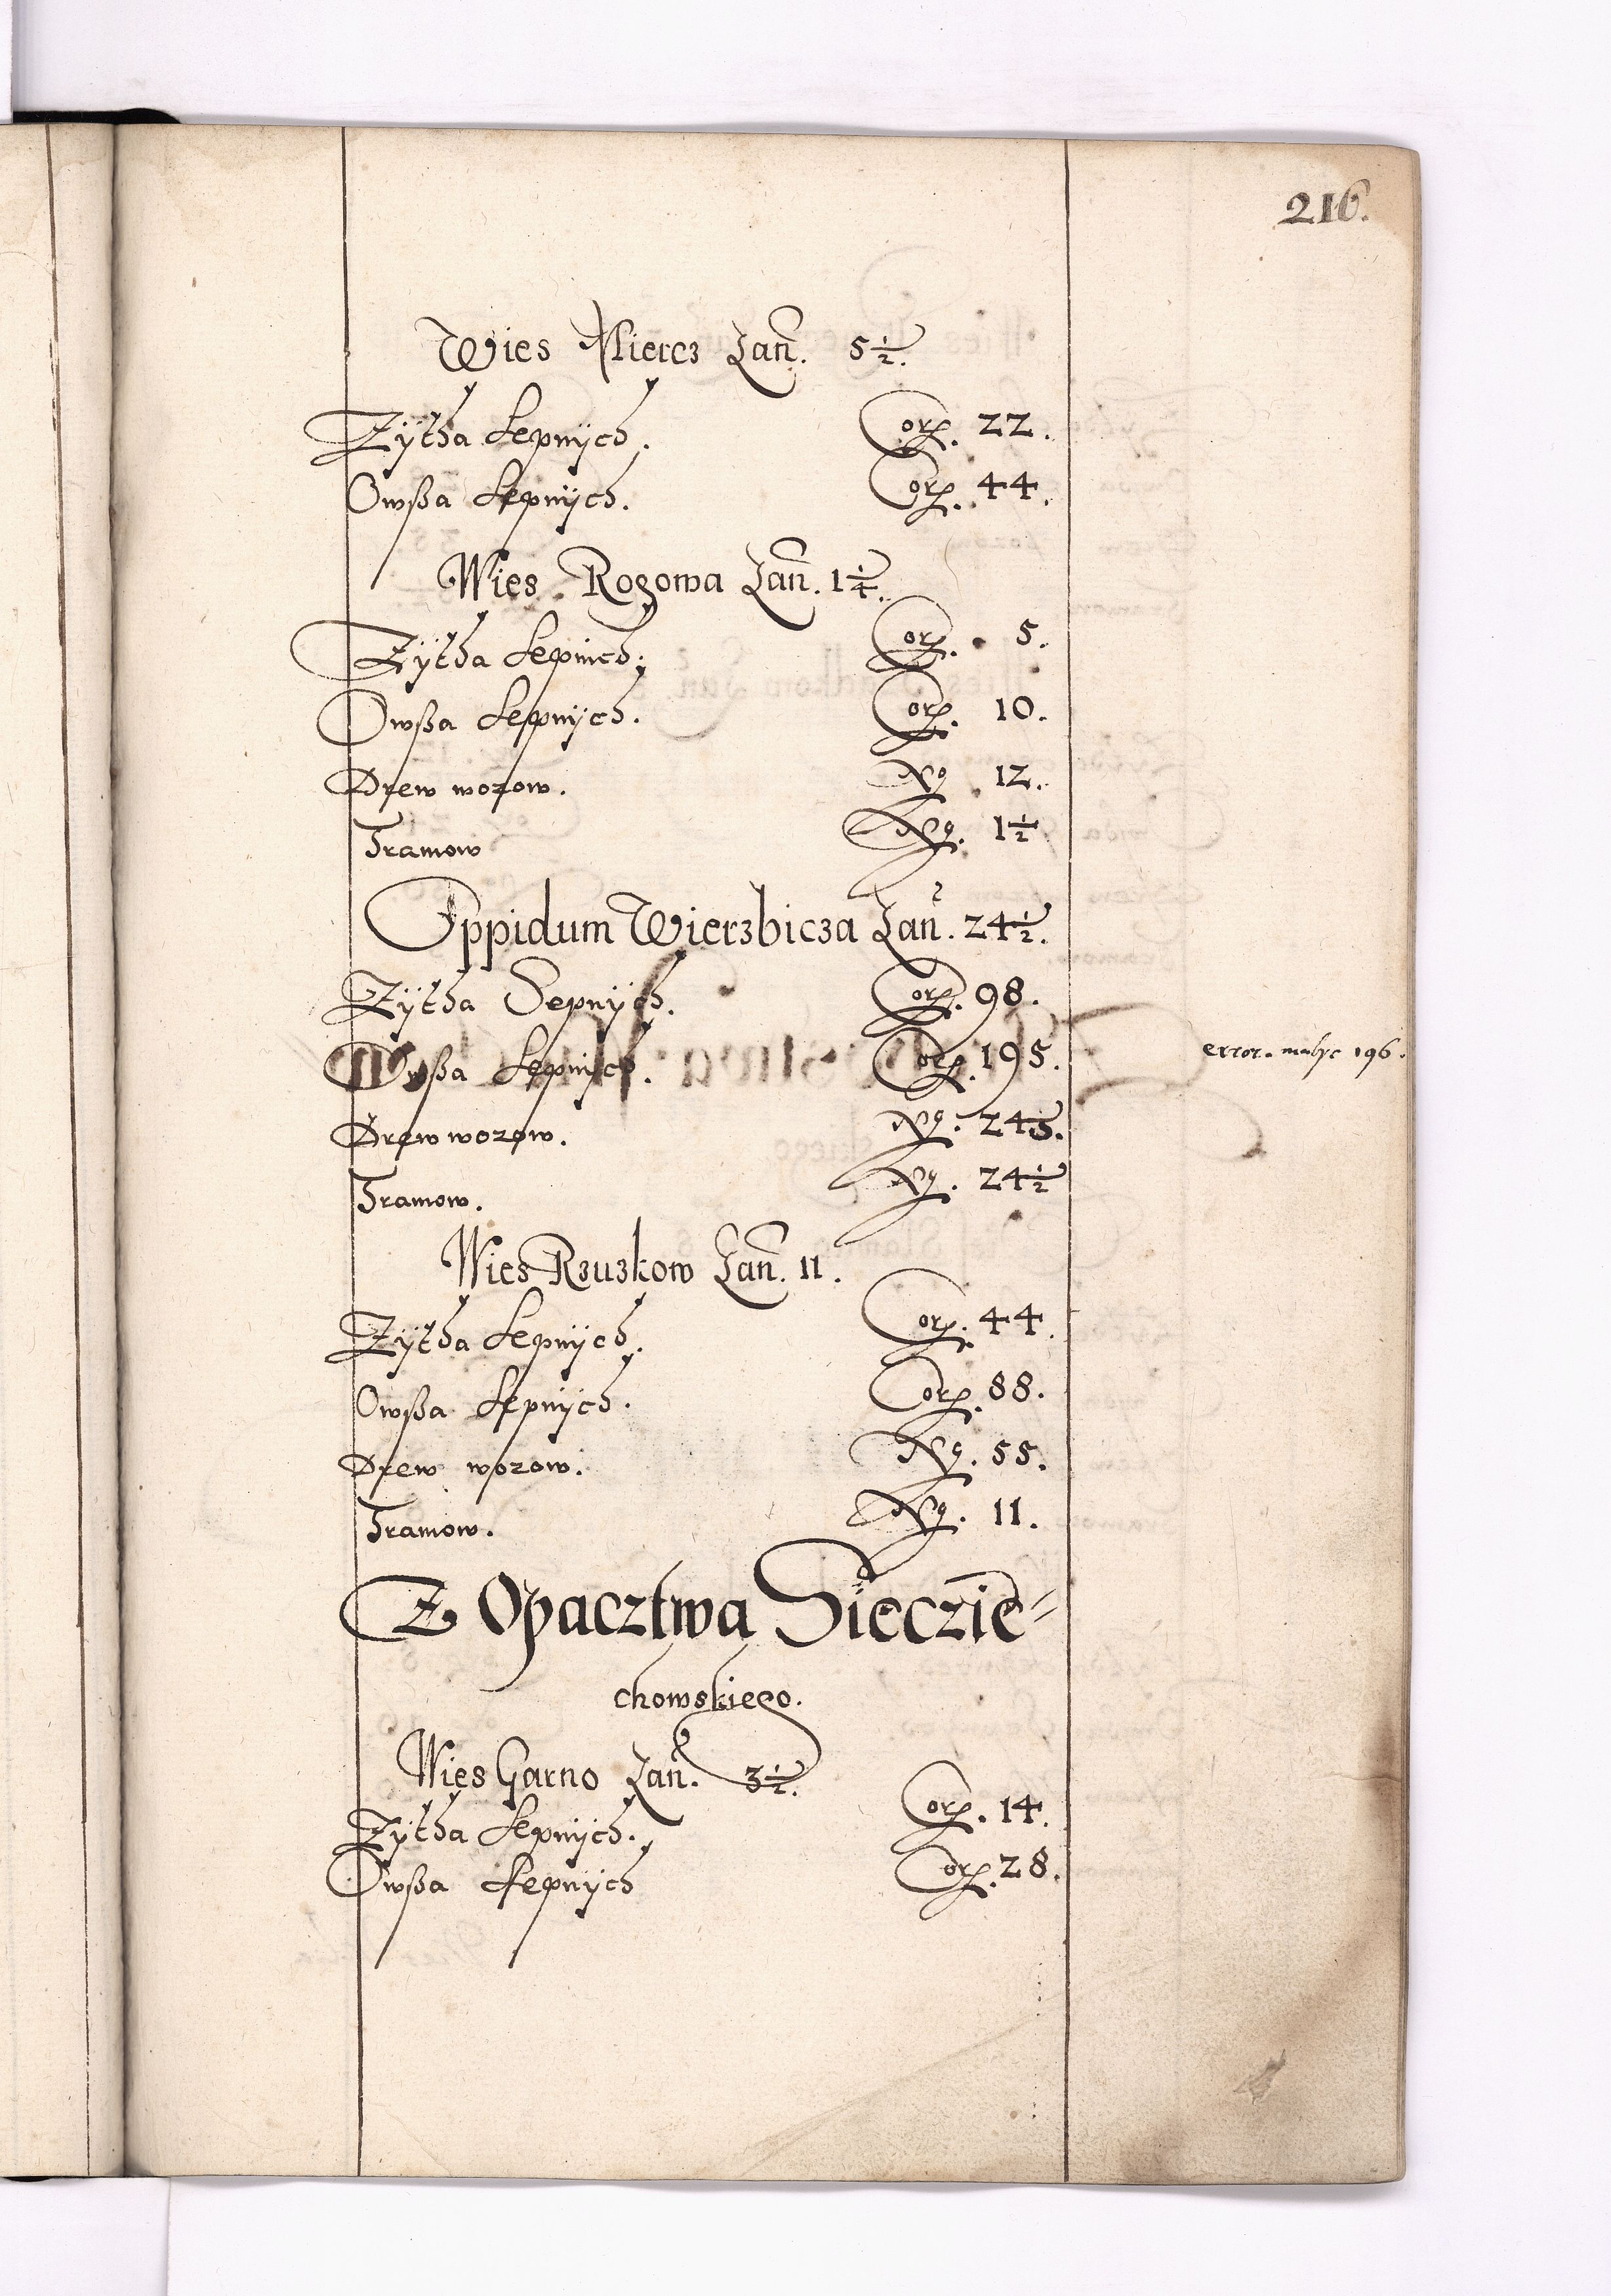 216.
Wies Miercz Łan. 5 1/2.
Zÿtha Sepnÿch. Cor. 22.
Owßa Sepnÿch. Cor. 44.
Wies Rogowa Łan. 1 1/4.
Zÿtha Sepnich. Cor. 5.
Owßa Sepnÿch. Cor. 10.
Drew wozow. No 12.
Tramow No. 1 1/2
Oppidum Wierzbicza Łan. 24 1/2.
Zÿtha Sepnÿch. Cor. 98.
Owßa Sepnÿch. Cor. 195. error. ma byc 196.
Drew wozow. No. 245.
Tramow. No. 24 1/2
Wies Rzuzkow Łan. 11.
Zÿtha Sepnÿch. Cor. 44.
Owßa Sepnÿch. Cor. 88.
Drew wozow. No. 55.
Tramow. No. 11.
Z Opacztwa Siecziechowskiego.
Wies Garno Łan. 3 1/2.
Zÿtha Sepnÿch. Cor. 14.
Owßa Sepnÿch Cor. 28.